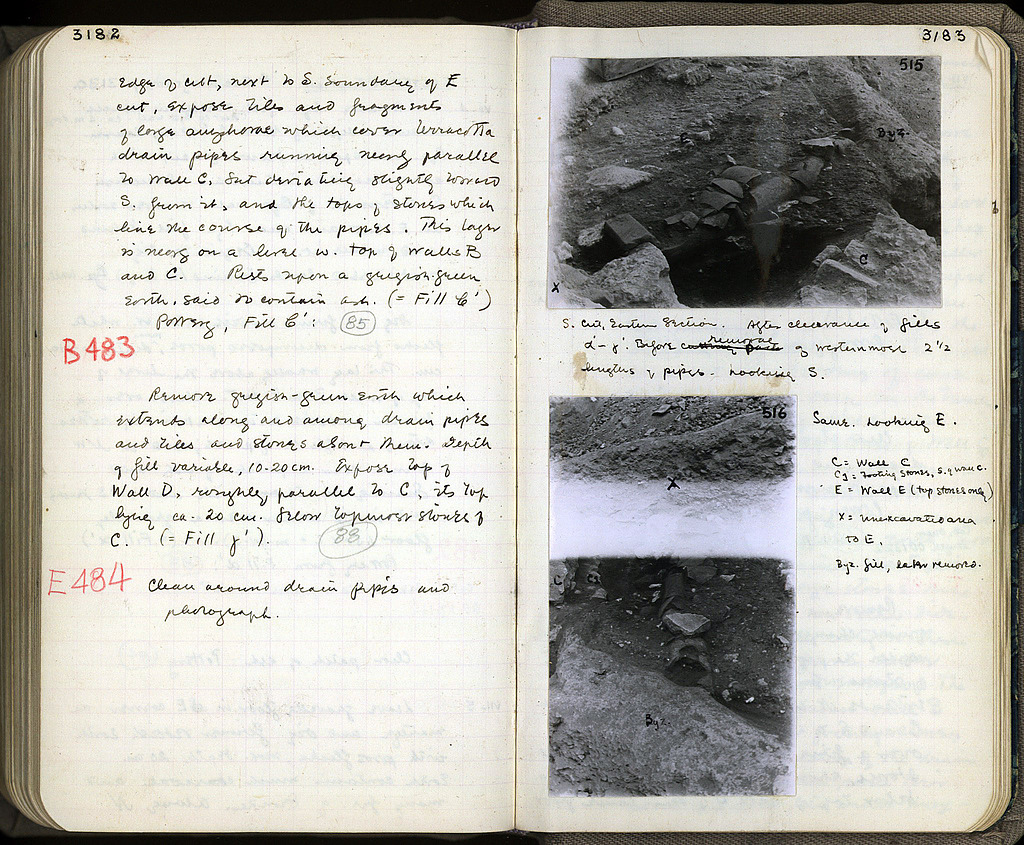 3182
Edge of cut, next to S. boundary of E
cut, expose tiles and fragments
of large amphorae which cover terracotta
drain pipes running nearly parallel
to Wall C, but deviating slightly toward
S. from it, and the tops of stones which
line the course of the pipes. This layer
is nearly on a level w. top of walls B
and C. Rests upon a greyish-green
earth, said to contain ash. (= Fill β')
Pottery, Fill β': 85
B483
Remove greyish-green earth which
extends along and among drain pipes
and tiles and stones about them. Depth
of fill variable, 10-20 cm. Expose top of
Wall D, roughly parallel to C its top
lying ca. 20 cm. below topmost stones of
C. (= Fill γ'). 88
E484
Clean around drain pipes and
photograph.
3183
515
E
Byz.
C
X
S. Cut, Eastern Section. After clearance of fills
α'-γ'. Before removal of westernmost 2 1/2
lengths of pipes. Looking S.
516
X
C
Byz.
Same. Looking E.
C = Wall C
Cf = Footing stones, S. of wall C.
E = Wall E (top stones only)
X = unexcavated area
to E.
Byz. fill, later removed.